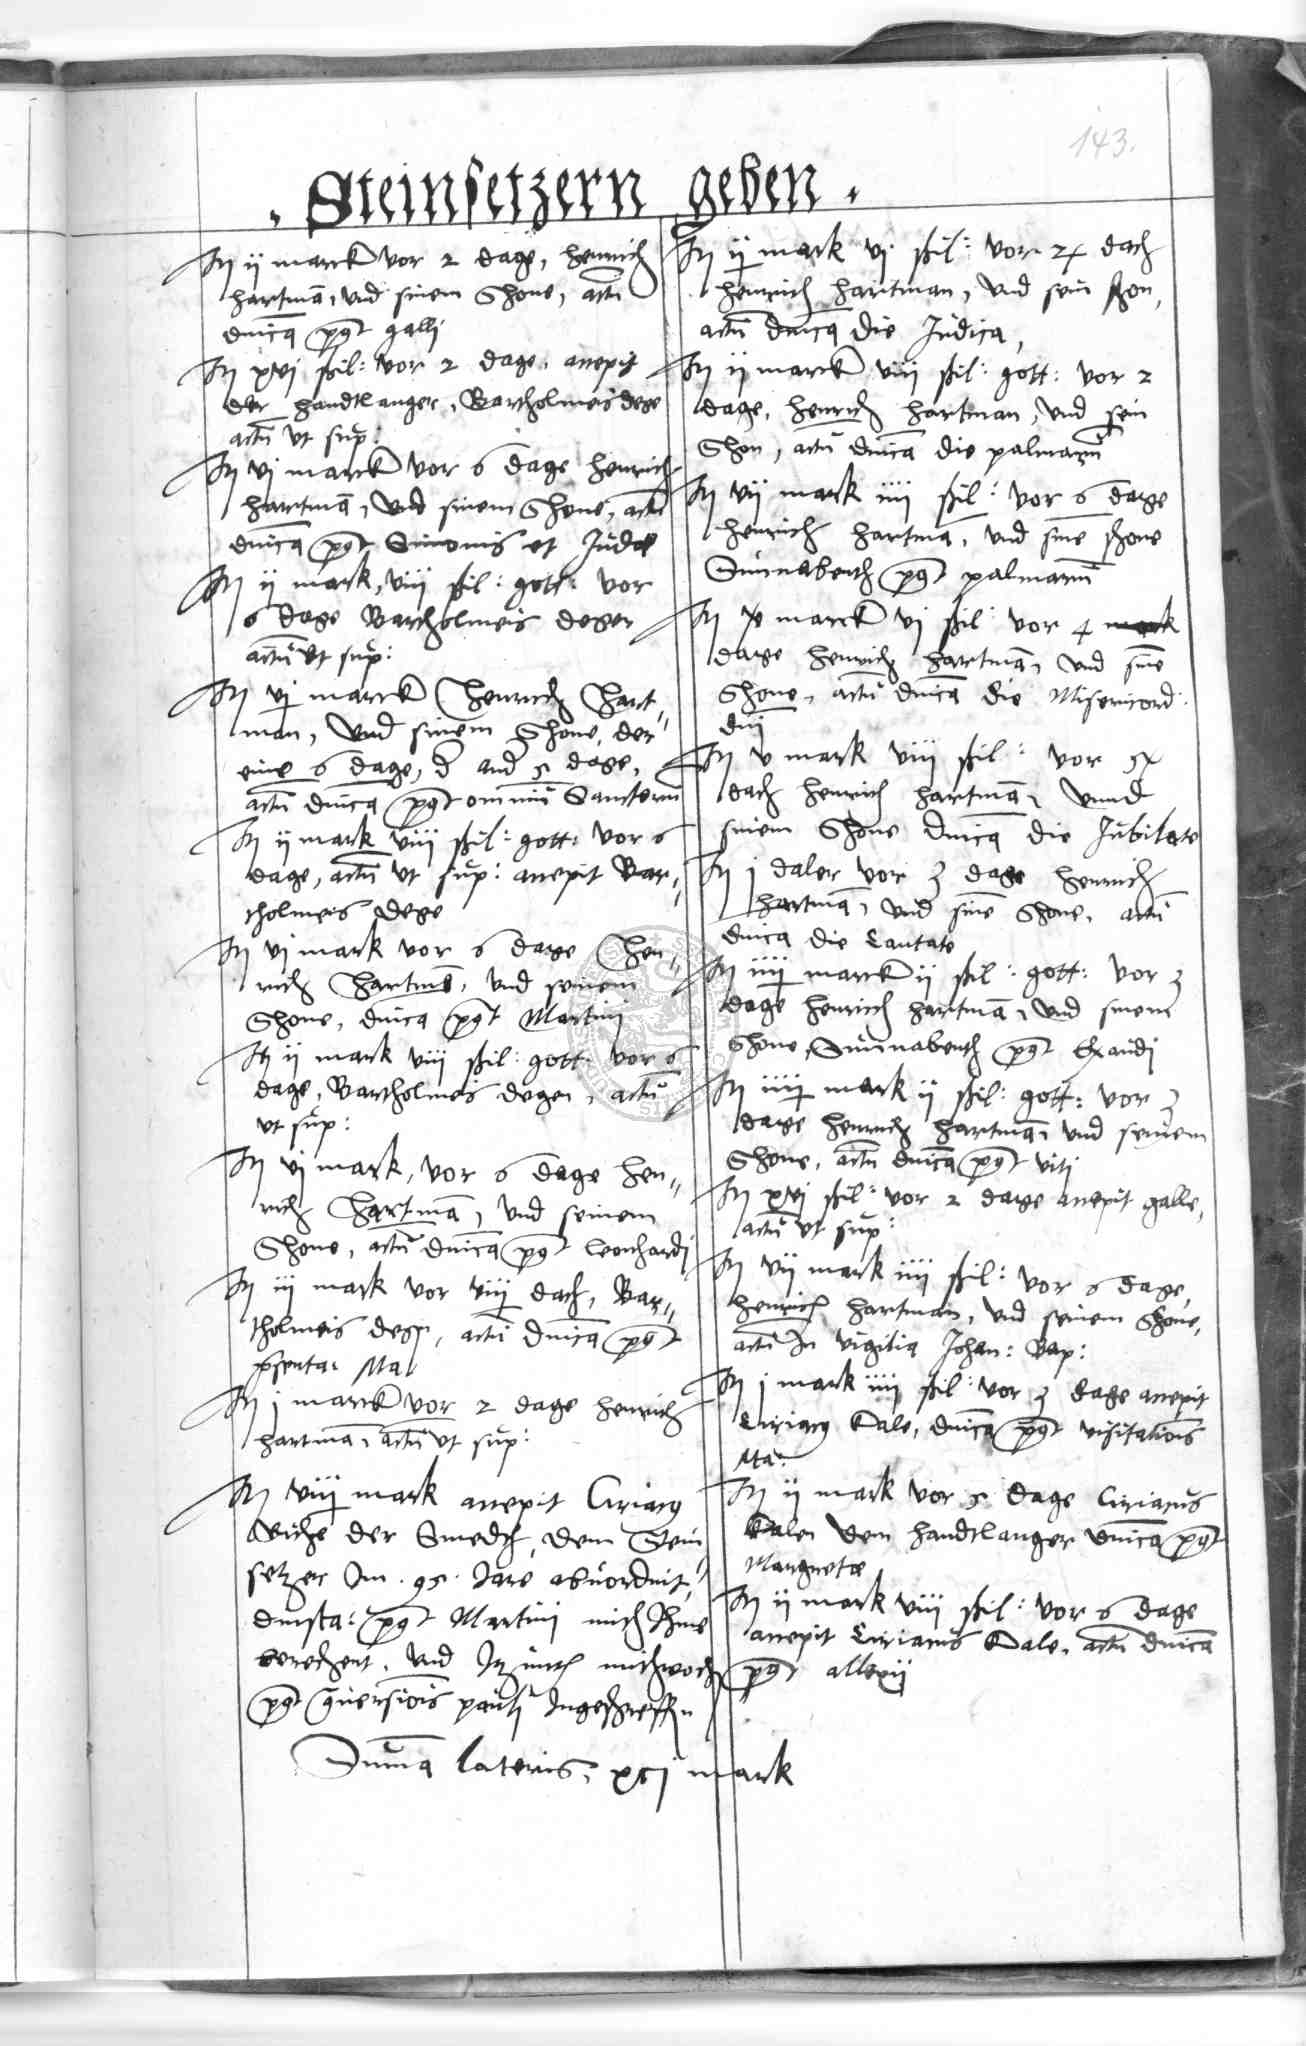 143.
. Steinsetzern geben .
It ij marck vor 2 dage, henrich
hartmā, und sinem Shone, actū
dnīca post galli
It xvj ßil: vor 2 dage, accepit
der handtlanger, Bartholmeis dege
actū ut sup:
It vj marck vor 6 dage henrich
hartmā, und sinem Shone, actū
dnīca post Simonis et Judae
It ij mark, viij ßil: gott: vor
6 dage Bartholmeis deger
actū ut sup:
It vj marck Henrich Hart„
man, und sinem Shone, der
eine 6 dage, d and 5 dage,
actū dnīca post omniū Sanctorum
It ij mark viij ßil: gott: vor 6
dage, actū ut sup: accepit Bar„
tholmeis dege
It vj mark vor 6 dage Hen„
rich Hartmā, und seinem
Shone, dnīca post Martini
It ij mark viij ßil: gott: vor 6
dage, Bartholmes degen, actū
ut sup:
It vj mark, vor 6 dage hen„
rich Hartmā, und seinem
Shone, actū dnīca post leonhardj
It iij mark vor viij dach, Bar„
tholmeis dege, actū dnīca post
psenta: Ma
It j marck vor 2 dage henrich
hartmā, actū ut sup:
It viij mark accepit Ciriacy
der Smedt, dem Stein„
setzer Im . 95 . Jare
dinsta: post Martini mich Ihme
berechent, und mithwoch
post cōversiōis pauli Ingeschreffn
It ij mark vj ßil: vor dach
henrich hartman, und sein shon,
actū dnīca die Judica,
It ij marck viij ßil: gott: vor 2
dage, henrich hartman, und sein
Shon, actū dnīca die palmarū
It vij mark iiij ßil: vor 6 dage
henrich hartmā, und sinē shone
Sunnabenth post palmarū
It marck vj ßil: vor 4 mark
dage henrich hartmā, und sinē
Shone, actū dnīca die Misericord:
dnī
It v mark viij ßil: vor
dach henrich hartmā, unnd
sinem Shone dnīca die Jubilate
It j daler vor 3 dage henrich
hartmā, und sinē Shone, actū
dnica die Cantate
It iiij marck ij ßil: gott: vor 3
dage henrich hartmā, und sinem
Shone, Sunnabenth post Exaudj
It iiij mark ij ßil: gott: vor 3
dage henrich hartmā, und seinem
Shone, actū dnīca post viti
It xvj ßil: vor 2 dage accepit galle,
actū ut sup:
It vij mark iiij ßil: vor 6 dage,
henrich hartman, und seinem Shone,
actū In vigilia Johan: Bap:
It j mark iiij ßil: vor 3 dage accepit
Ciriacy Kale, dnīca post visitatiōis
Ma:
It ij mark vor 5 dage Ciriacus
Kalen dem handtlanger dnīca post
Margretae
It ij mark viij ßil: vor 6 dage
accepit Ciriacus Kale, actū dnīca
post allexij
Summa lateris, xcj mark